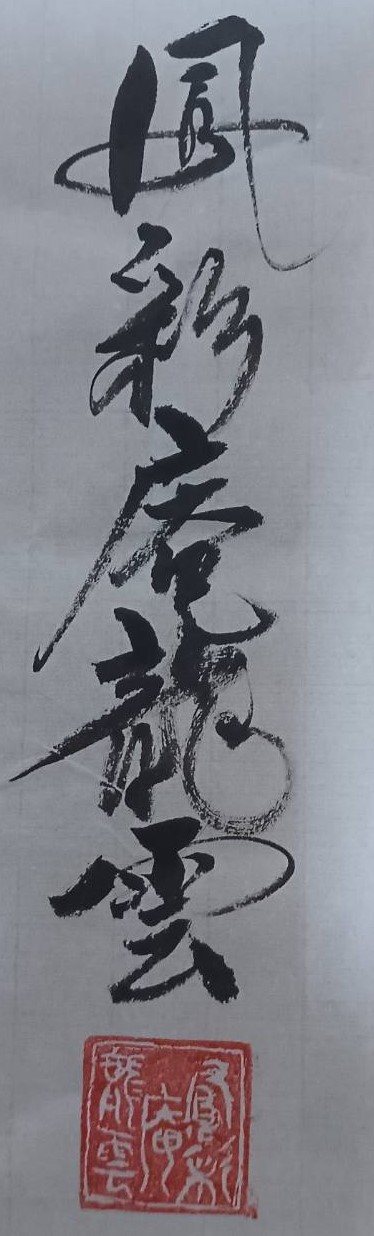 鳳彩庵龍雲
鳳彩
庵
龍雲